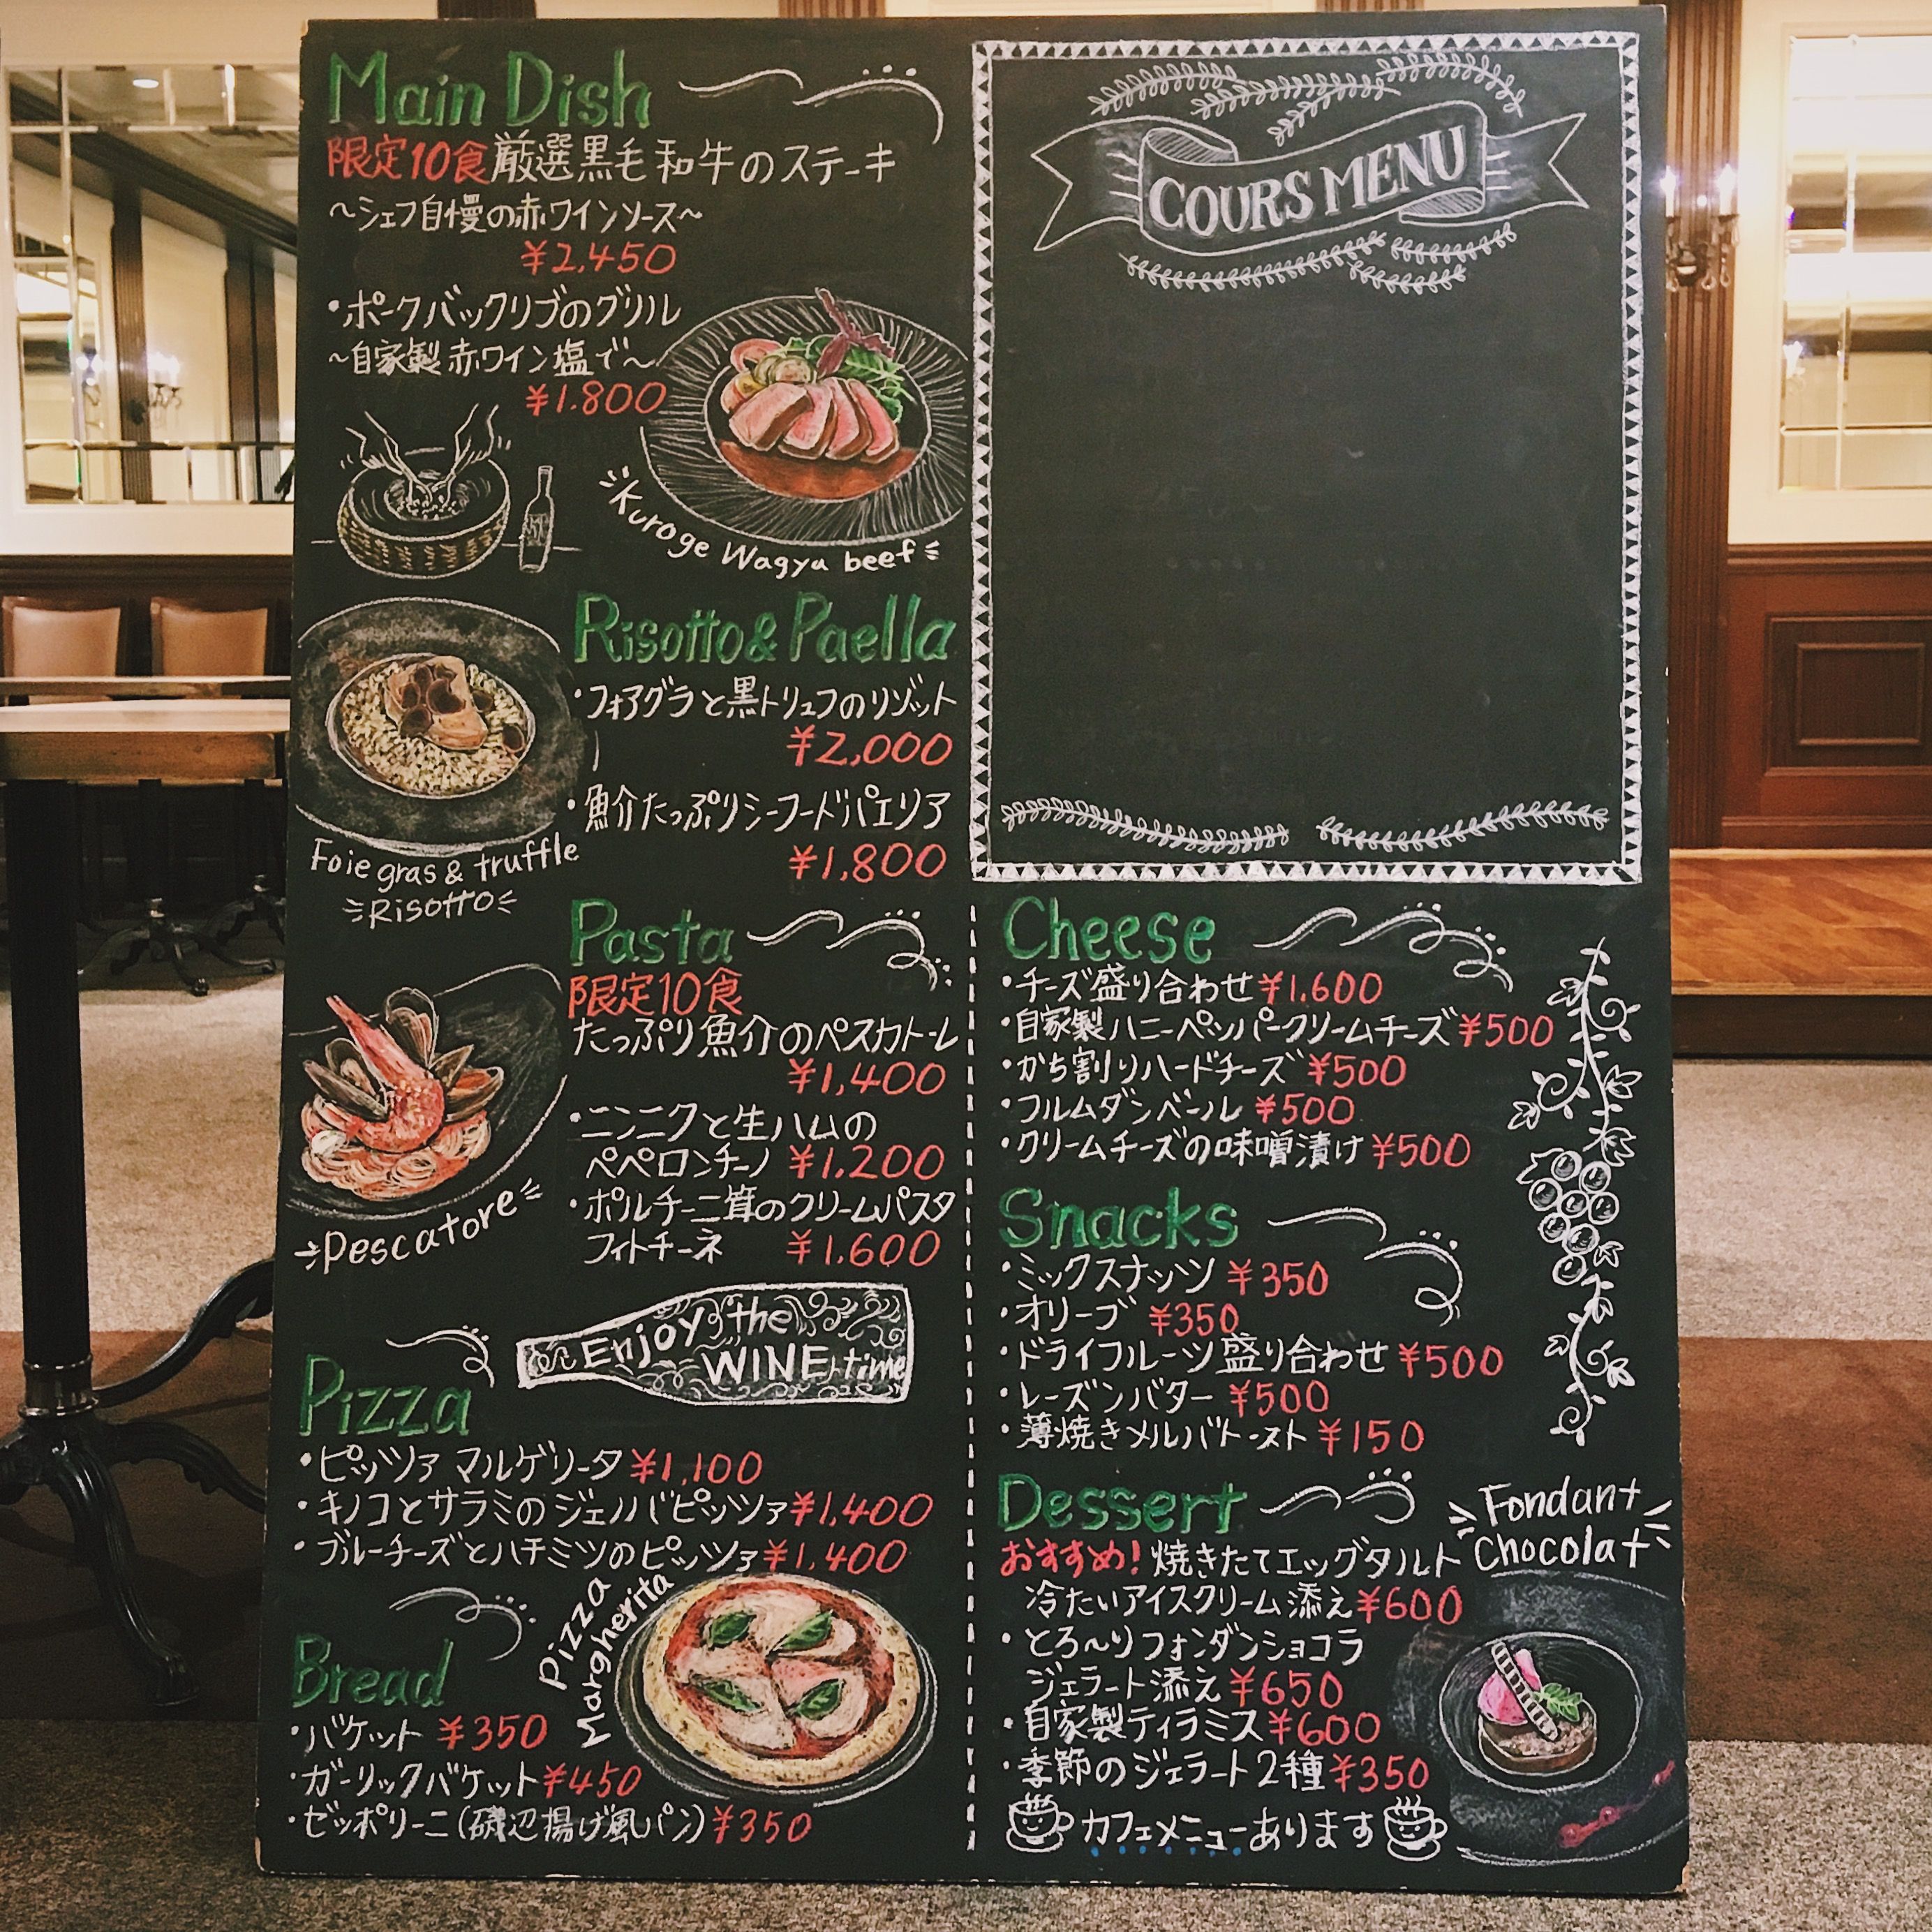 Main Dish
限定10食厳選黒毛和牛のステーキ
~シェフ自慢の赤ワインソース~
¥2,450
・ポークバックリブのグリル
~自家製赤ワイン塩で~
¥1.800
Kuroge Wagyu beef
Risotto&Paella
・フォアグラと黒トリュフのリゾット
¥2,000
・魚介たっぷりシーフードパエリア
¥1,800
Foie gras & truffle
Risotto
Pasta
限定10食
たっぷり魚介のペスカトーレ
¥1,400
・ニンニクと生ハムの
ペペロンチーノ ¥1.200
・ポルチーニ茸のクリームパスタ
フィトチーネ ¥1.600
Pescatore
Enjoy the
WINE time
Pizza
・ピッツァ マルゲリータ ¥1,100
・キノコとサラミのジェノバピッツァ¥1,400
・ブルーチーズとハチミツのピッツァ¥1,400
Pizza
Margherita
Bread
・バケット ¥350
・ガーリックバケット¥450
・ゼッポリーニ(磯辺揚げ風パン)¥350
COURS MENU
Cheese
・チーズ盛り合わせ¥1.600
・自家製ハニーペッパークリームチーズ¥500
・かち割りハードチーズ ¥500
・フルムダンベール ¥500
・クリームチーズの味噌漬け ¥500
Snacks
・ミックスナッツ ¥350
・オリーブ ¥350
・ドライフルーツ盛り合わせ ¥500
・レーズンバター ¥500
・薄焼きメルバトースト ¥150
Dessert
おすすめ!焼きたてエッグタルト
冷たいアイスクリーム添え¥600
・とろ~りフォンダンショコラ
ジェラート添え ¥650
・自家製ティラミス¥600
・季節のジェラート2種¥350
カフェメニューあります
Fondant
Chocolat